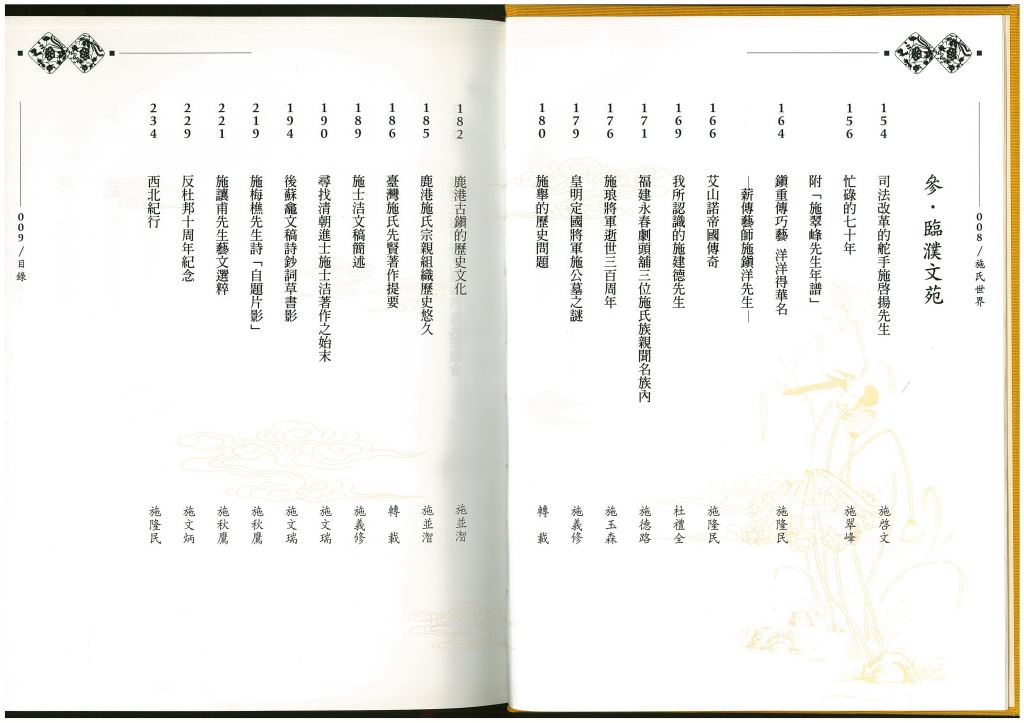 008/施氏世界
參·臨濮文苑
154 司法改革的舵手施啓揚先生 施啓文
156 忙碌的七十年 施翠峰
附「施翠峰先生年譜」
164 鎭重傳巧藝 洋洋得華名 施隆民
—薪傳藝師施鎭洋先生—
166 艾山諾帝國傳奇 施隆民
169 我所認識的施建德先生 杜禮全
171 福建永春劇頭舖三位施氏族親聞名族內 施德路
176 施琅將軍逝世三百周年 施玉森
179 皇明定國將軍施公墓之謎 施義修
180 施舉的歷史問題 轉載
182 鹿港古鎭的歷史文化 施並溜
185 鹿港施氏宗親組織歷史悠久 施並溜
186 臺灣施氏先賢著作提要 轉載
189 施士洁文稿簡述 施義修
190 尋找清朝進士施士洁著作之始末 施文瑞
194 後蘇龕文稿詩鈔詞草書影 施文瑞
219 施梅樵先生詩「自題片影」 施秋鷹
221 施讓甫先生藝文選粹 施秋鷹
229 反杜邦十周年紀念 施文炳
234 西北紀行 施隆民
009/目錄